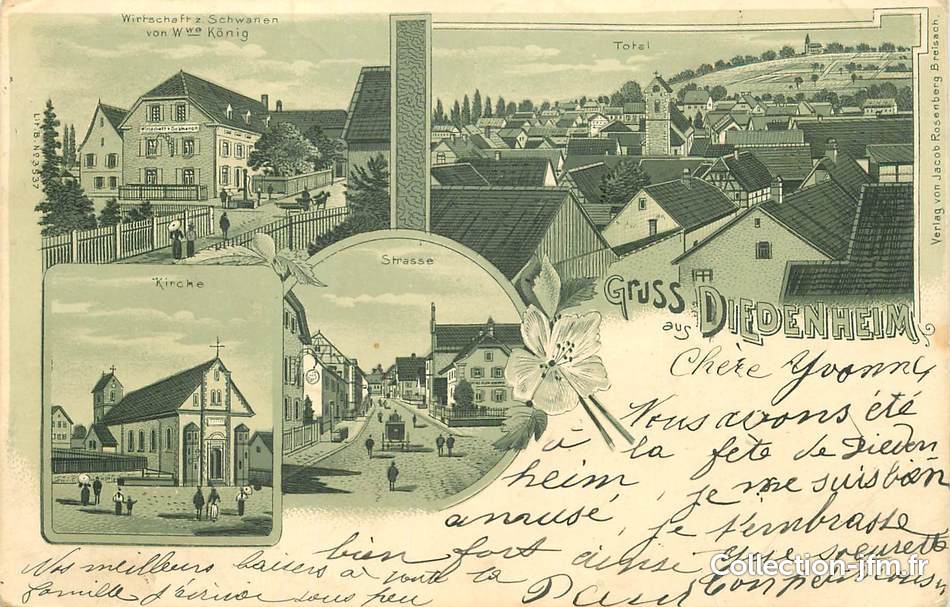 Wirtschaft z. Schwanen
von Wwe König
Total
Verlag von Jacob Rosenberg Breisach
Lit. B. No 3537
Kirche
Strasse
Gruss
aus DIEDENHEIM
Chère Yvonne
Nous avons été
à la fête de Dieden
heim je me suis bien
amusé, je t'embrasse
bien fort ainsi que soeurette
Paul
Nos meilleurs baisers à toute la
famille
Collection-jfm.fr